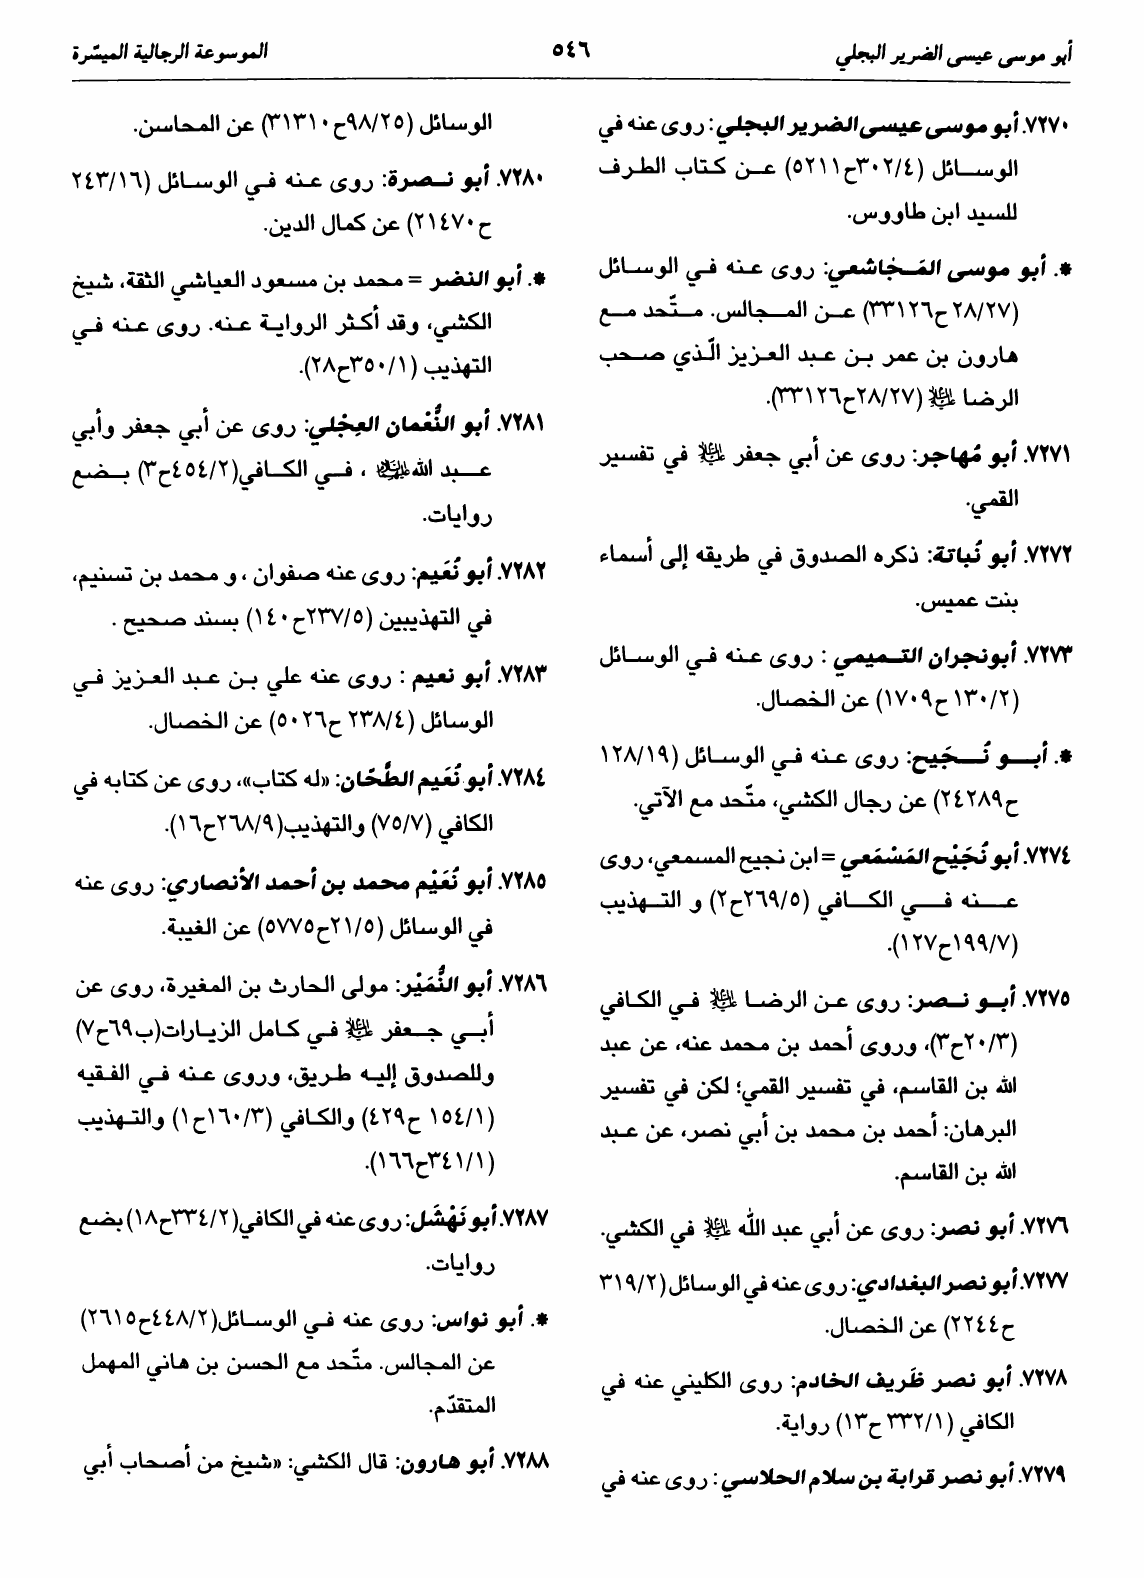 أبو موسى عيسى الضرير البجلي
٥٤٦
الموسوعة الرجالية الميسّرة
٧٢٧٠. أبو موسى عيسى الضرير البجلي: روى عنه في
الوسائل (٣٠٢/٤ح٥٢١١) عن كتاب الطرف
للسيد ابن طاووس.
*. أبو موسى المَجٰاشعي: روى عنه في الوسائل
(٢٨/٢٧ح٣٣١٢٦) عن المجالس. متّحد مع
هارون بن عمر بن عبد العزيز الّذي صحب
الرضا ﷺ (٢٨/٢٧ح٣٣١٢٦).
٧٢٧١. أبو مُهاجر: روى عن أبي جعفر ﷺ في تفسير
القمي.
٧٢٧٢. أبو نُباتة: ذكره الصدوق في طريقه إلى أسماء
بنت عميس.
٧٢٧٣. أبو نجران التميمي : روى عنه في الوسائل
(١٣٠/٢ ح١٧٠٩) عن الخصال.
*. أبو نُجَيح: روى عنه في الوسائل (١٢٨/١٩
ح٢٤٢٨٩) عن رجال الكشي، متّحد مع الآتي.
٧٢٧٤. أبو نُجَيْح المَسْمَعي = ابن نجيح المسمعي، روى
عنه في الكافي (٢٦٩/٥ح٢) و التهذيب
(١٩٩/٧ح١٢٧).
٧٢٧٥. أبو نصر: روى عن الرضا ﷺ في الكافي
(٢٠/٣ح٣)، وروى أحمد بن محمد عنه، عن عبد
الله بن القاسم، في تفسير القمي؛ لكن في تفسير
البرهان: أحمد بن محمد بن أبي نصر، عن عبد
الله بن القاسم.
٧٢٧٦. أبو نصر: روى عن أبي عبد الله ﷺ في الكشي.
٧٢٧٧. أبو نصر البغدادي: روى عنه في الوسائل (٣١٩/٢
ح٢٢٤٤) عن الخصال.
٧٢٧٨. أبو نصر ظَريف الخادم: روى الكليني عنه في
الكافي (٣٣٢/١ ح١٣) رواية.
٧٢٧٩. أبو نصر قرابة بن سلام الحلاسي : روى عنه في
الوسائل (٩٨/٢٥ح٣١٣١٠) عن المحاسن.
٧٢٨٠. أبو نصرة: روى عنه في الوسائل (٢٤٣/١٦
ح٢١٤٧٠) عن كمال الدين.
*. أبو النضر = محمد بن مسعود العياشي الثقة، شيخ
الكشي، وقد أكثر الرواية عنه. روى عنه في
التهذيب (٣٥٠/١ح٢٨).
٧٢٨١. أبو النُّعْمان العِجْلي: روى عن أبي جعفر وأبي
عبد الله ، في الكافي(٤٥٤/٢ح٣) بضع
روايات.
٧٢٨٢. أبو نُعَيم: روى عنه صفوان ، و محمد بن تسنيم،
في التهذيبين (٢٣٧/٥ح١٤٠) بسند صحيح .
٧٢٨٣. أبو نعيم : روى عنه علي بن عبد العزيز في
الوسائل (٢٣٨/٤ ح٥٠٢٦) عن الخصال.
٧٢٨٤. أبو نُعَيم الطَّحّان: «له كتاب»، روى عن كتابه في
الكافي (٧٥/٧) والتهذيب(٢٦٨/٩ح١٦).
٧٢٨٥. أبو نُعَيْم محمد بن أحمد الأنصاري: روى عنه
في الوسائل (٢١/٥ح٥٧٧٥) عن الغيبة.
٧٢٨٦. أبو النُّمَيْر: مولى الحارث بن المغيرة، روى عن
أبي جعفر ﷺ في كامل الزيارات(ب٦٩ح٧)
وللصدوق إليه طريق، وروى عنه في الفقيه
(١٥٤/١ ح٤٢٩) والكافي (١٦٠/٣ح١) والتهذيب
(٣٤١/١ح١٦٦).
٧٢٨٧. أبو نَهْشَل: روى عنه في الكافي(٣٣٤/٢ح١٨) بضع
روايات.
*. أبو نواس: روى عنه في الوسائل(٤٤٨/٢ح٢٦١٥)
عن المجالس. متّحد مع الحسن بن هاني المهمل
المتقدّم.
٧٢٨٨. أبو هارون: قال الكشي: «شيخ من أصحاب أبي